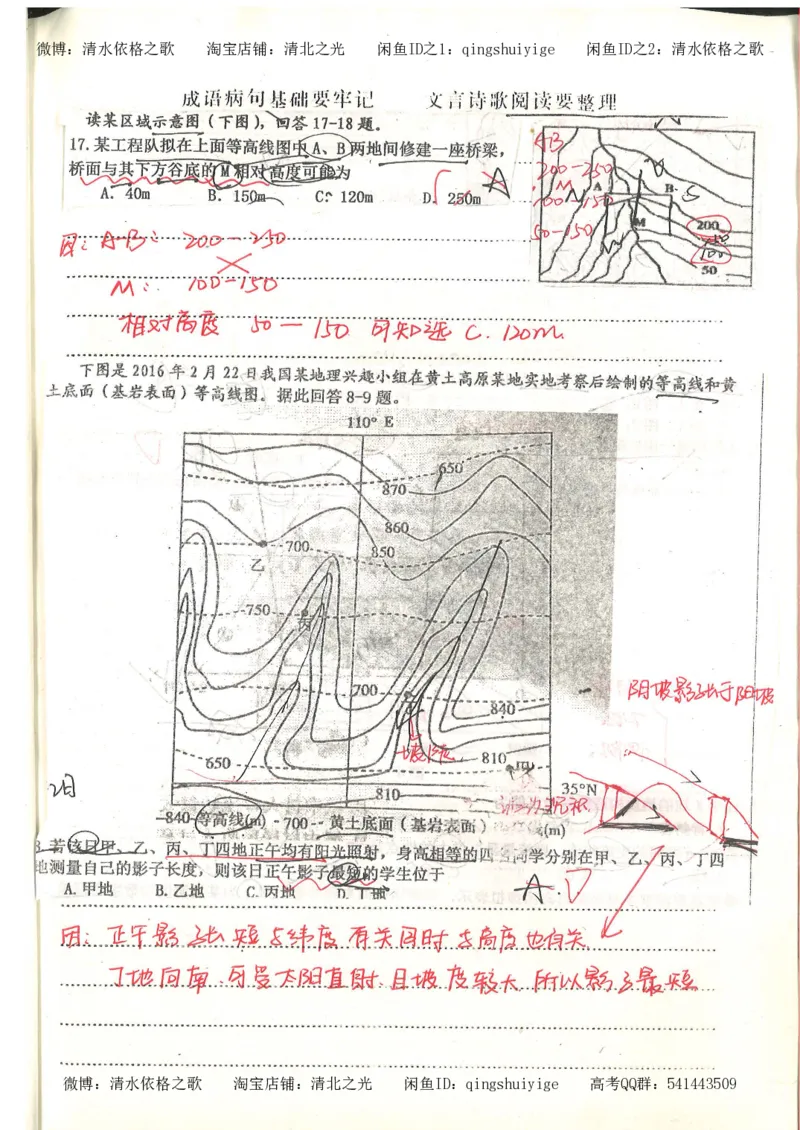 微博：清水依格之歌 淘宝店铺：清北之光 闲鱼ID之1：qingshuiyige 闲鱼ID之2：清水依格之歌
成语病句基础要牢记 文言诗歌阅读要整理
读某区域示意图（下图），回答 17-18 题。
17.某工程队拟在上面等高线图中 A、B 两地间修建一座桥梁，
桥面与其下方谷底的 M 相对高度可能为
A. 40m B. 150m C. 120m D. 250m
A
AB
200-250
M
100-150
50-150
A
B
M
200
150
100
50
因：A-B： 200-250
M： 100-150
相对高度 50—150 可知选 C. 120m
下图是 2016 年 2 月 22 日我国某地理兴趣小组在黄土高原某地实地考察后绘制的等高线和黄
土底面（基岩表面）等高线图。据此回答 8-9 题。
110° E
650
870
860
700
850
乙
750
丙
700
840
650
810
丁
810
35°N
阴坡影子长于阳坡
2月
840 等高线(m) 700 黄土底面（基岩表面）
(m)
8.若该日甲、乙、丙、丁四地正午均有阳光照射，身高相等的四名同学分别在甲、乙、丙、丁四
地测量自己的影子长度，则该日正午影子最短的学生位于
A. 甲地 B. 乙地 C. 丙地 D. 丁地
A. D
因：正午影子长短与纬度有关同时与高度也有关
丁地向南 可受太阳直射 且坡度较大 所以影子最短
微博：清水依格之歌 淘宝店铺：清北之光 闲鱼ID：qingshuiyige 高考QQ群：541443509